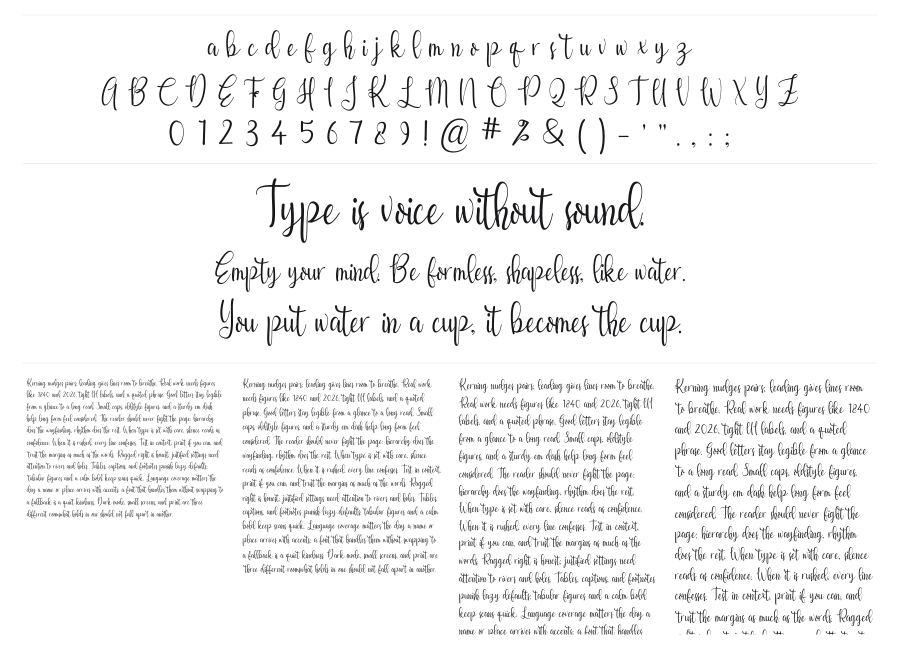 a b c d e f g h i j k l m n o p q r s t u v w x y z
A B C D E F G H I J K L M N O P Q R S T U V W X Y Z
0 1 2 3 4 5 6 7 8 9 ! @ # % & ( ) - ' " . , : ;
Type is voice without sound.
Empty your mind. Be formless, shapeless, like water.
You put water in a cup, it becomes the cup.
Kerning nudges pairs; leading gives lines room to breathe. Real work needs figures
like 1240 and 2026, tight UI labels, and a quoted phrase. Good letters stay legible
from a glance to a long read. Small caps, oldstyle figures, and a sturdy em dash
help long form feel considered. The reader should never fight the page; hierarchy
does the wayfinding, rhythm does the rest. When type is set with care, silence reads as
confidence. When it is rushed, every line confesses. Test in context, print if you can, and
trust the margins as much as the words. Ragged right is honest; justified settings need
attention to rivers and holes. Tables, captions, and footnotes punish lazy defaults;
tabular figures and a calm bold keep scans quick. Language coverage matters the
day a name or place arrives with accents; a font that handles them without swapping to
a fallback is a quiet kindness. Dark mode, small screens, and print are three
different rooms; what holds in one should not fall apart in another.
Kerning nudges pairs; leading gives lines room to breathe. Real work
needs figures like 1240 and 2026, tight UI labels, and a quoted
phrase. Good letters stay legible from a glance to a long read. Small
caps, oldstyle figures, and a sturdy em dash help long form feel
considered. The reader should never fight the page; hierarchy does the
wayfinding, rhythm does the rest. When type is set with care, silence
reads as confidence. When it is rushed, every line confesses. Test in context,
print if you can, and trust the margins as much as the words. Ragged
right is honest; justified settings need attention to rivers and holes. Tables,
captions, and footnotes punish lazy defaults; tabular figures and a calm
bold keep scans quick. Language coverage matters the day a name or
place arrives with accents; a font that handles them without swapping to
a fallback is a quiet kindness. Dark mode, small screens, and print are
three different rooms; what holds in one should not fall apart in another.
Kerning nudges pairs; leading gives lines room to breathe.
Real work needs figures like 1240 and 2026, tight UI
labels, and a quoted phrase. Good letters stay legible
from a glance to a long read. Small caps, oldstyle
figures, and a sturdy em dash help long form feel
considered. The reader should never fight the page;
hierarchy does the wayfinding, rhythm does the rest.
When type is set with care, silence reads as confidence.
When it is rushed, every line confesses. Test in context,
print if you can, and trust the margins as much as the
words. Ragged right is honest; justified settings need
attention to rivers and holes. Tables, captions, and footnotes
punish lazy defaults; tabular figures and a calm bold
keep scans quick. Language coverage matters the day a
name or place arrives with accents; a font that handles
Kerning nudges pairs; leading gives lines room
to breathe. Real work needs figures like 1240
and 2026, tight UI labels, and a quoted
phrase. Good letters stay legible from a glance
to a long read. Small caps, oldstyle figures,
and a sturdy em dash help long form feel
considered. The reader should never fight the
page; hierarchy does the wayfinding, rhythm
does the rest. When type is set with care, silence
reads as confidence. When it is rushed, every line
confesses. Test in context, print if you can, and
trust the margins as much as the words. Ragged